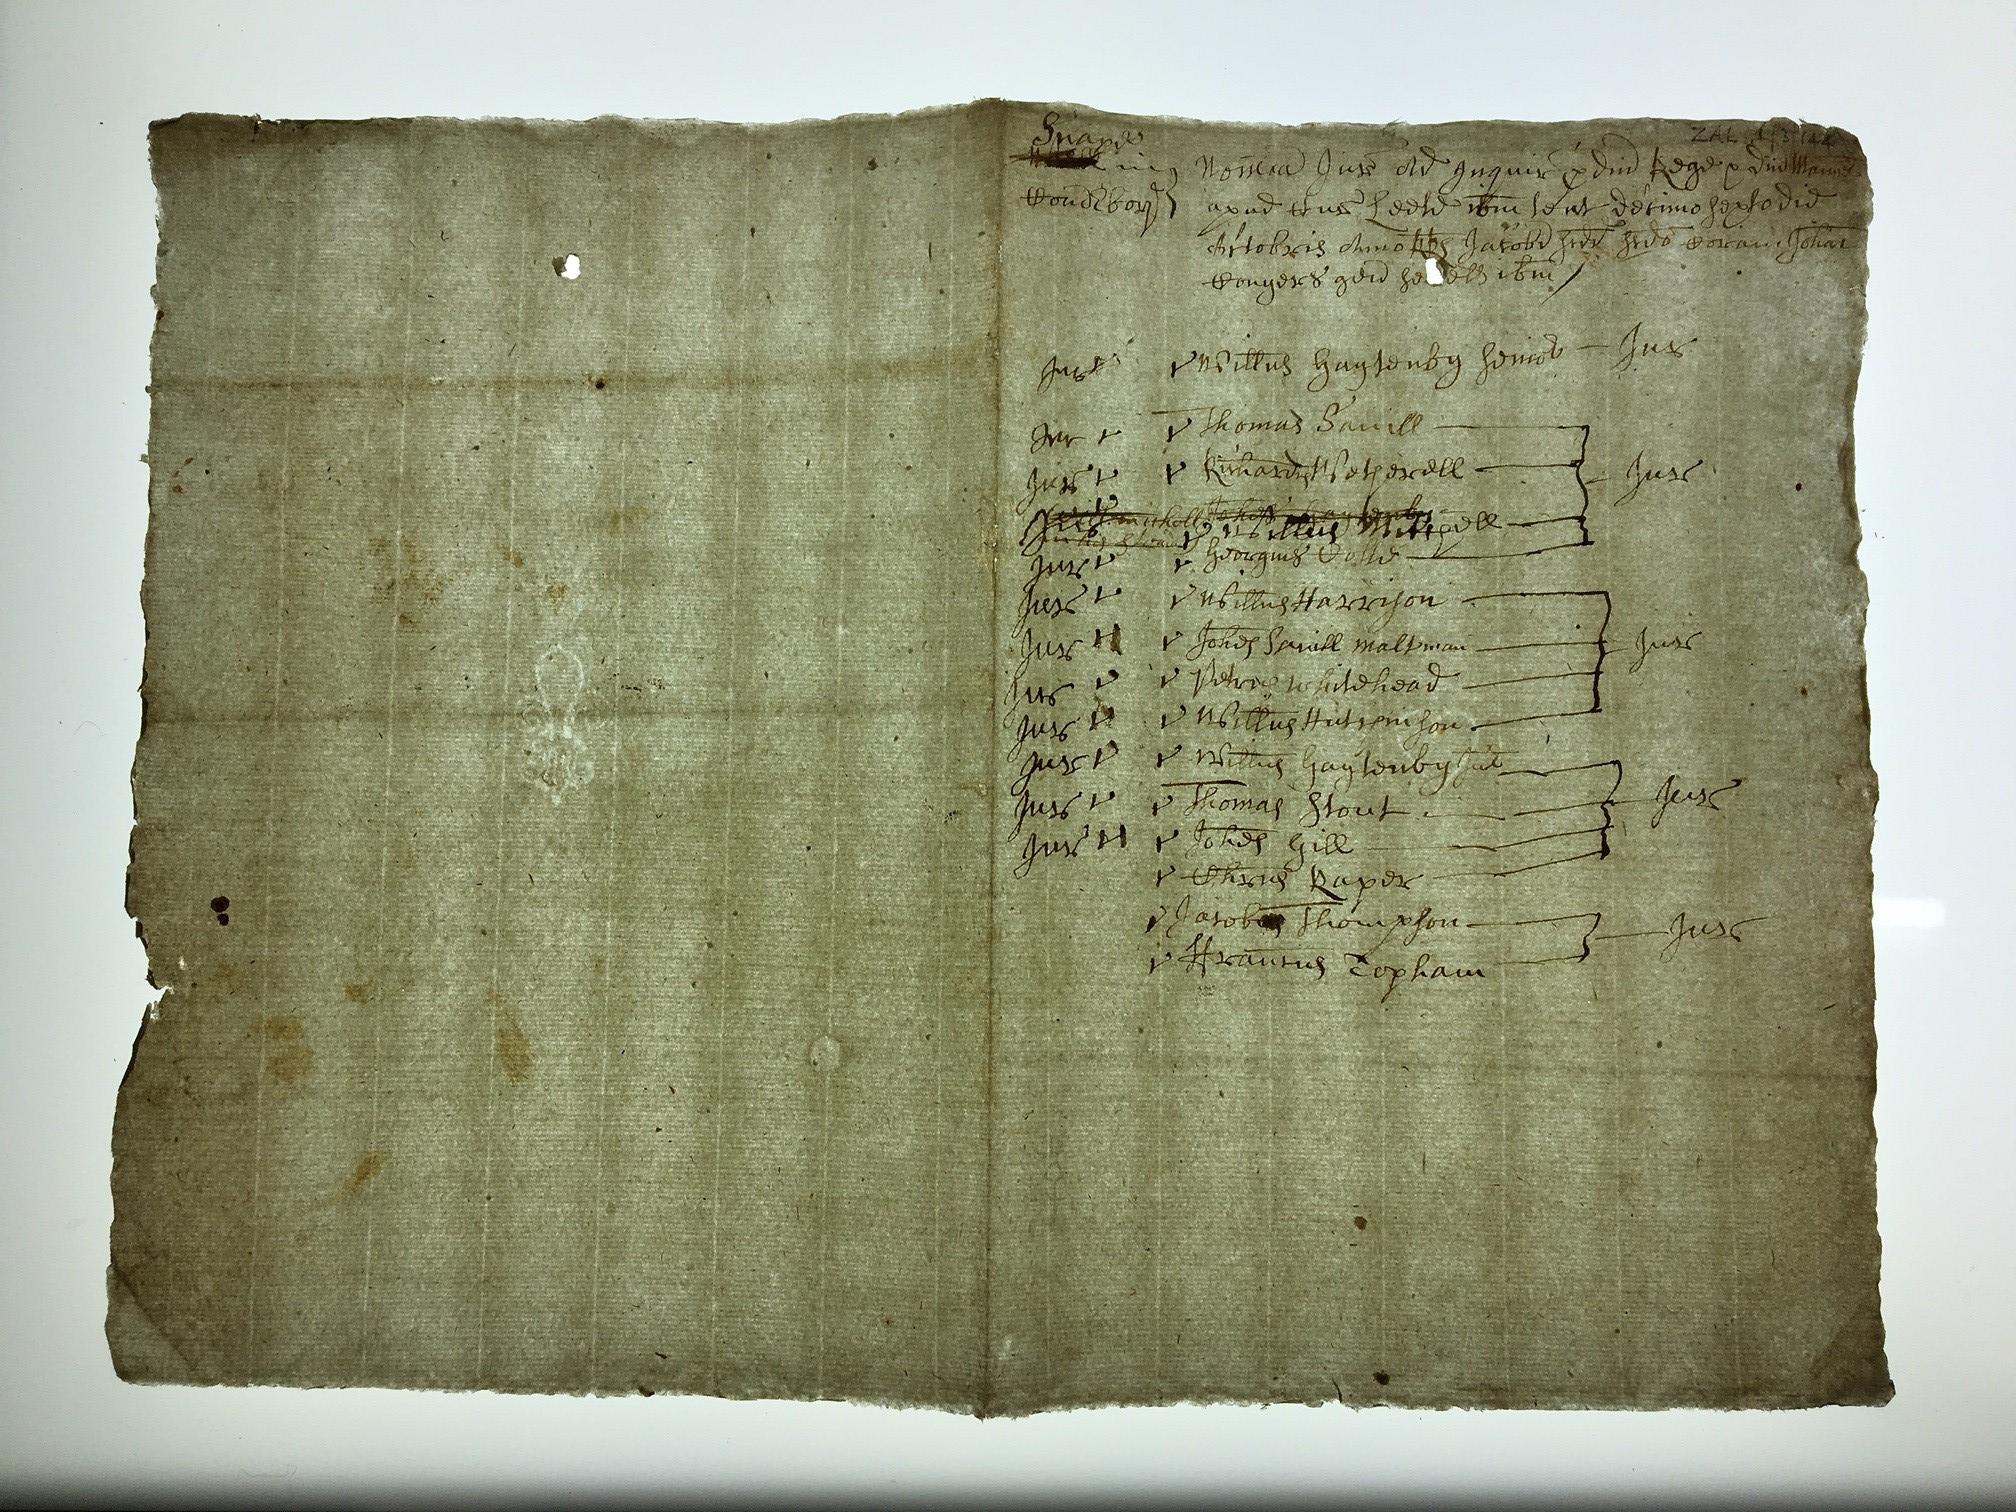 ZAL 1/3/122
Snape
Nomina Jur ad Inquir p dno Rege p dno Manerii
apud Cur Leete ibm tent decimo sexto die
Octobris Anno Rs Jacobi coram Johne
Conyers gen sen ibm
Jur Willus Gaytenby senior Jur
Jur Thomas Savill
Jur Richardus Wetherell Jur
Willus Mitchell
Jur Georgius
Jur Willus Harrison
Jur Johes Savill maltman Jur
Jur Petrus Whitehead
Jur Willus Hutchinson
Jur Willus Gaytenby Jun
Jur Thomas Stout Jur
Jur Johes Gill
Chrus Raper
Jacobus Thompson Jur
Francus Topham